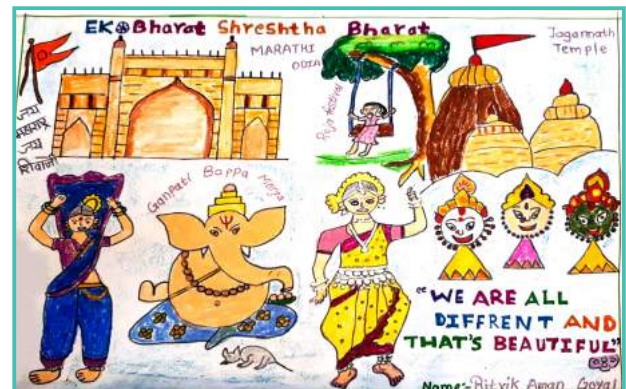 EK Bharat Shreshtha Bharat
MARATHI
ODIA
Jagannath
Temple
Raja festival
जय
जय
शिवाजी
Ganpati Bappa Morya
"WE ARE ALL
DIFFRENT AND
THAT'S BEAUTIFUL"
Name:- Ritvik Aman Goyal